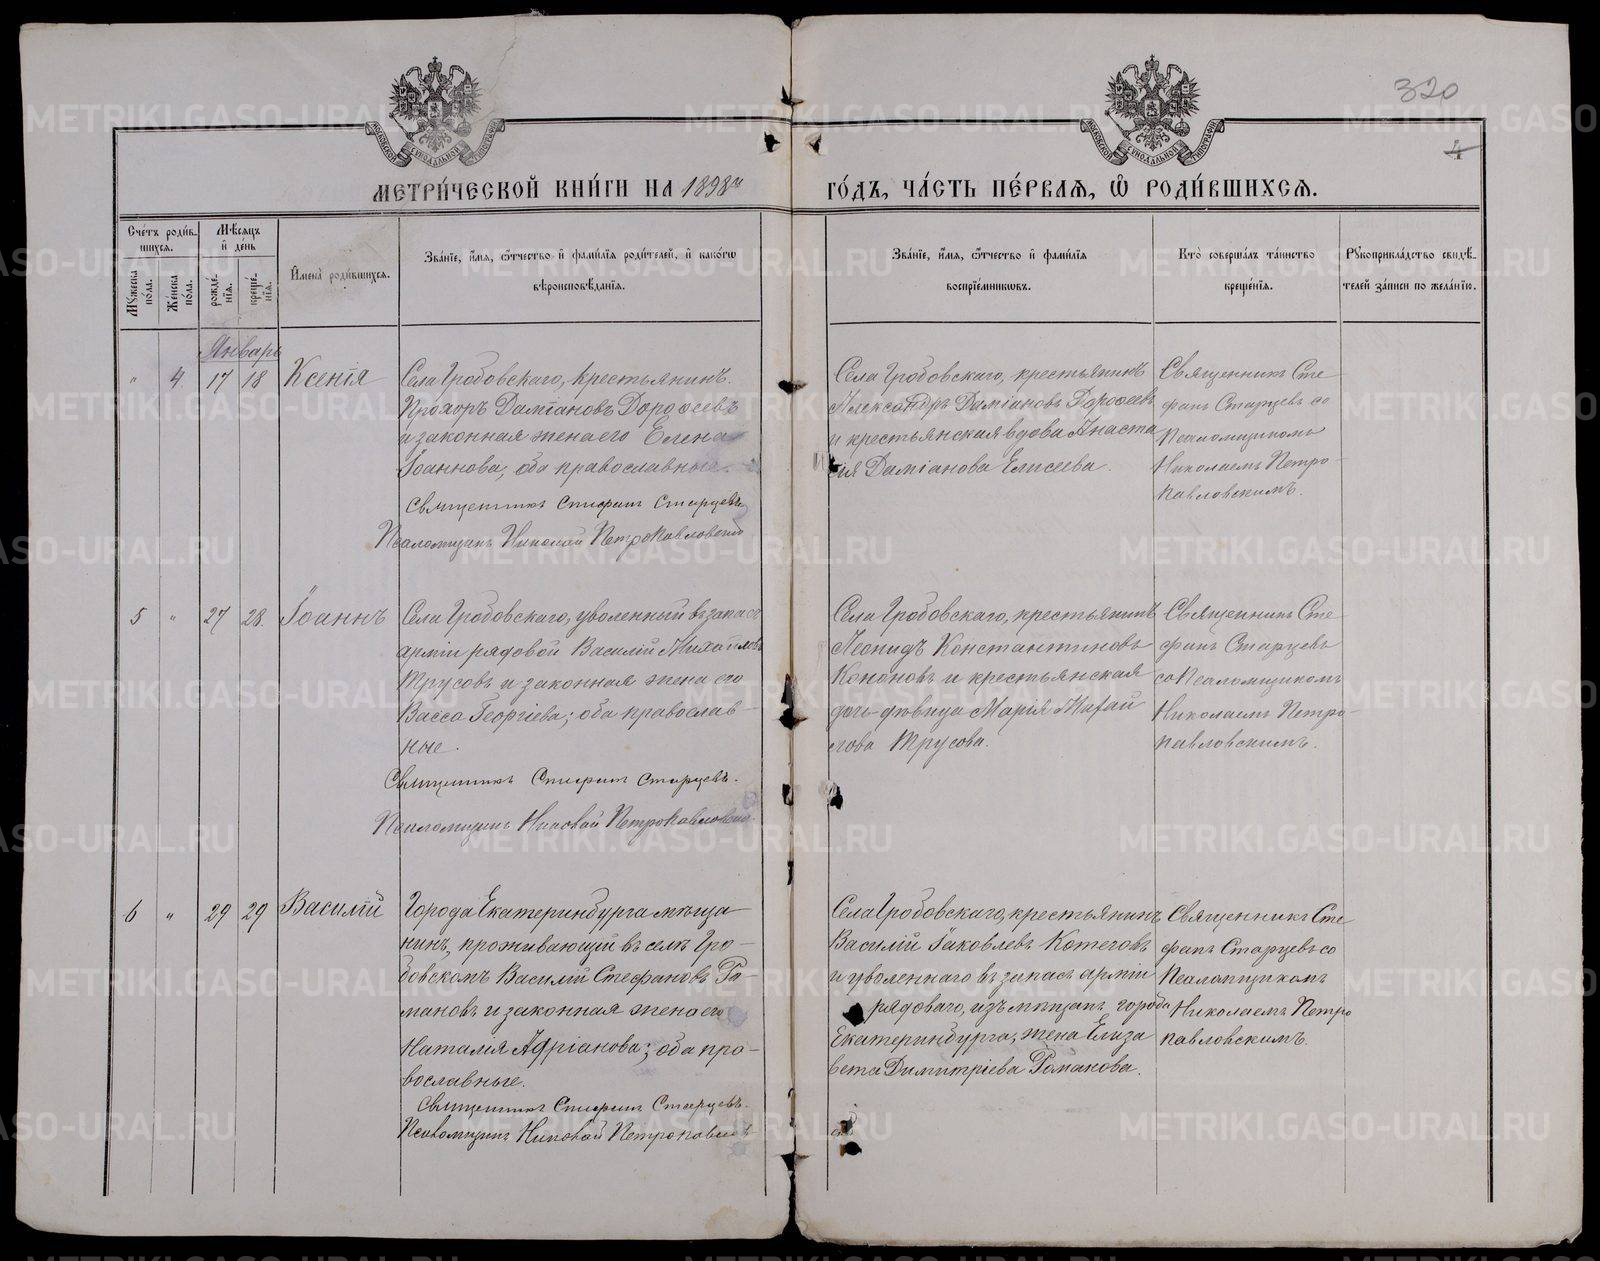 320
4
МЕТРИ́ЧЕСКОЙ КНИ́ГИ НА 1898й
ГО́ДЪ, ЧА́СТЬ ПЕ́РВАѦ, Ѿ РОДИ́ВШИХСѦ.
Сче́тъ роди́в-
шихсѧ.
Мѣ́сѧцъ
и҆ де́нь
Мꙋжеска по́ла.
Же́нска по́ла.
рожде́-нїѧ.
креще́-нїѧ.
И҆мена̀ роди́вшихсѧ.
Зва́нїе, и҆́мѧ, ѻ҆́тчество и҆ фами́лїѧ роди́телей, и҆ како́гѡ
вѣроисповѣ́данїѧ.
Зва́нїе, и҆́мѧ, ѻ҆́тчество и҆ фами́лїѧ
воспрїе́мникѡвъ.
Кто̀ соверша́лъ та́инство
креще́нїѧ.
Рꙋкоприкла́дство свидѣ́-
телей за́писи по жела́нїю.
Январь
" 4 17 18 Ксенія
Села Гробовскаго, крестьянинъ
Прохоръ Даміановъ Дороѳеевъ
и законная жена его Елена
Іоаннова, оба православные.
Священникъ Стефанъ Старцевъ
Псаломщикъ Николай Петропавловскій
Села Гробовскаго, крестьянинъ
Александръ Даміановъ Дороѳеевъ
и крестьянская вдова Анаста
сія Даміанова Елисеева.
Священникъ Сте
фанъ Старцевъ со
Псаломщикомъ
Николаемъ Петро-
павловскимъ.
5 " 27 28 Іоаннъ
Села Гробовскаго, уволенный въ запасъ
арміи рядовой Василій Михайловъ
Трусовъ и законная жена его
Васса Георгіева; оба православ-
ные.
Священникъ Стефанъ Старцевъ.
Псаломщикъ Николай Петропавловскій.
Села Гробовскаго, крестьянинъ
Леонидъ Константиновъ
Кононовъ и крестьянская
дочь-дѣвица Марія Михай
лова Трусова.
Священникъ Сте-
фанъ Старцевъ
со Псаломщикомъ
Николаемъ Петро-
павловскимъ.
6 " 29 29 Василій
Города Екатеринбурга мѣща-
нинъ, проживающій въ селѣ Гро-
бовскомъ Василій Стефановъ Ро-
мановъ и законная жена его
Наталія Адріанова; оба пра-
вославные.
Священникъ Стефанъ Старцевъ.
Псаломщикъ Николай Петропавловскій
Села Гробовскаго, крестьянинъ
Василій Іаковлевъ Котеговъ
и уволеннаго въ запасъ арміи
рядоваго, изъ мѣщанъ города
Екатеринбурга, жена Елиза
вета Димитріева Романова.
Священникъ Сте
фанъ Старцевъ со
Псаломщикомъ
Николаемъ Петро
павловскимъ.
METRIKI.GASO-URAL.RU